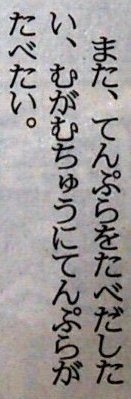 また、てんぷらをたべだした
い、むがむちゅうにてんぷらが
たべたい。